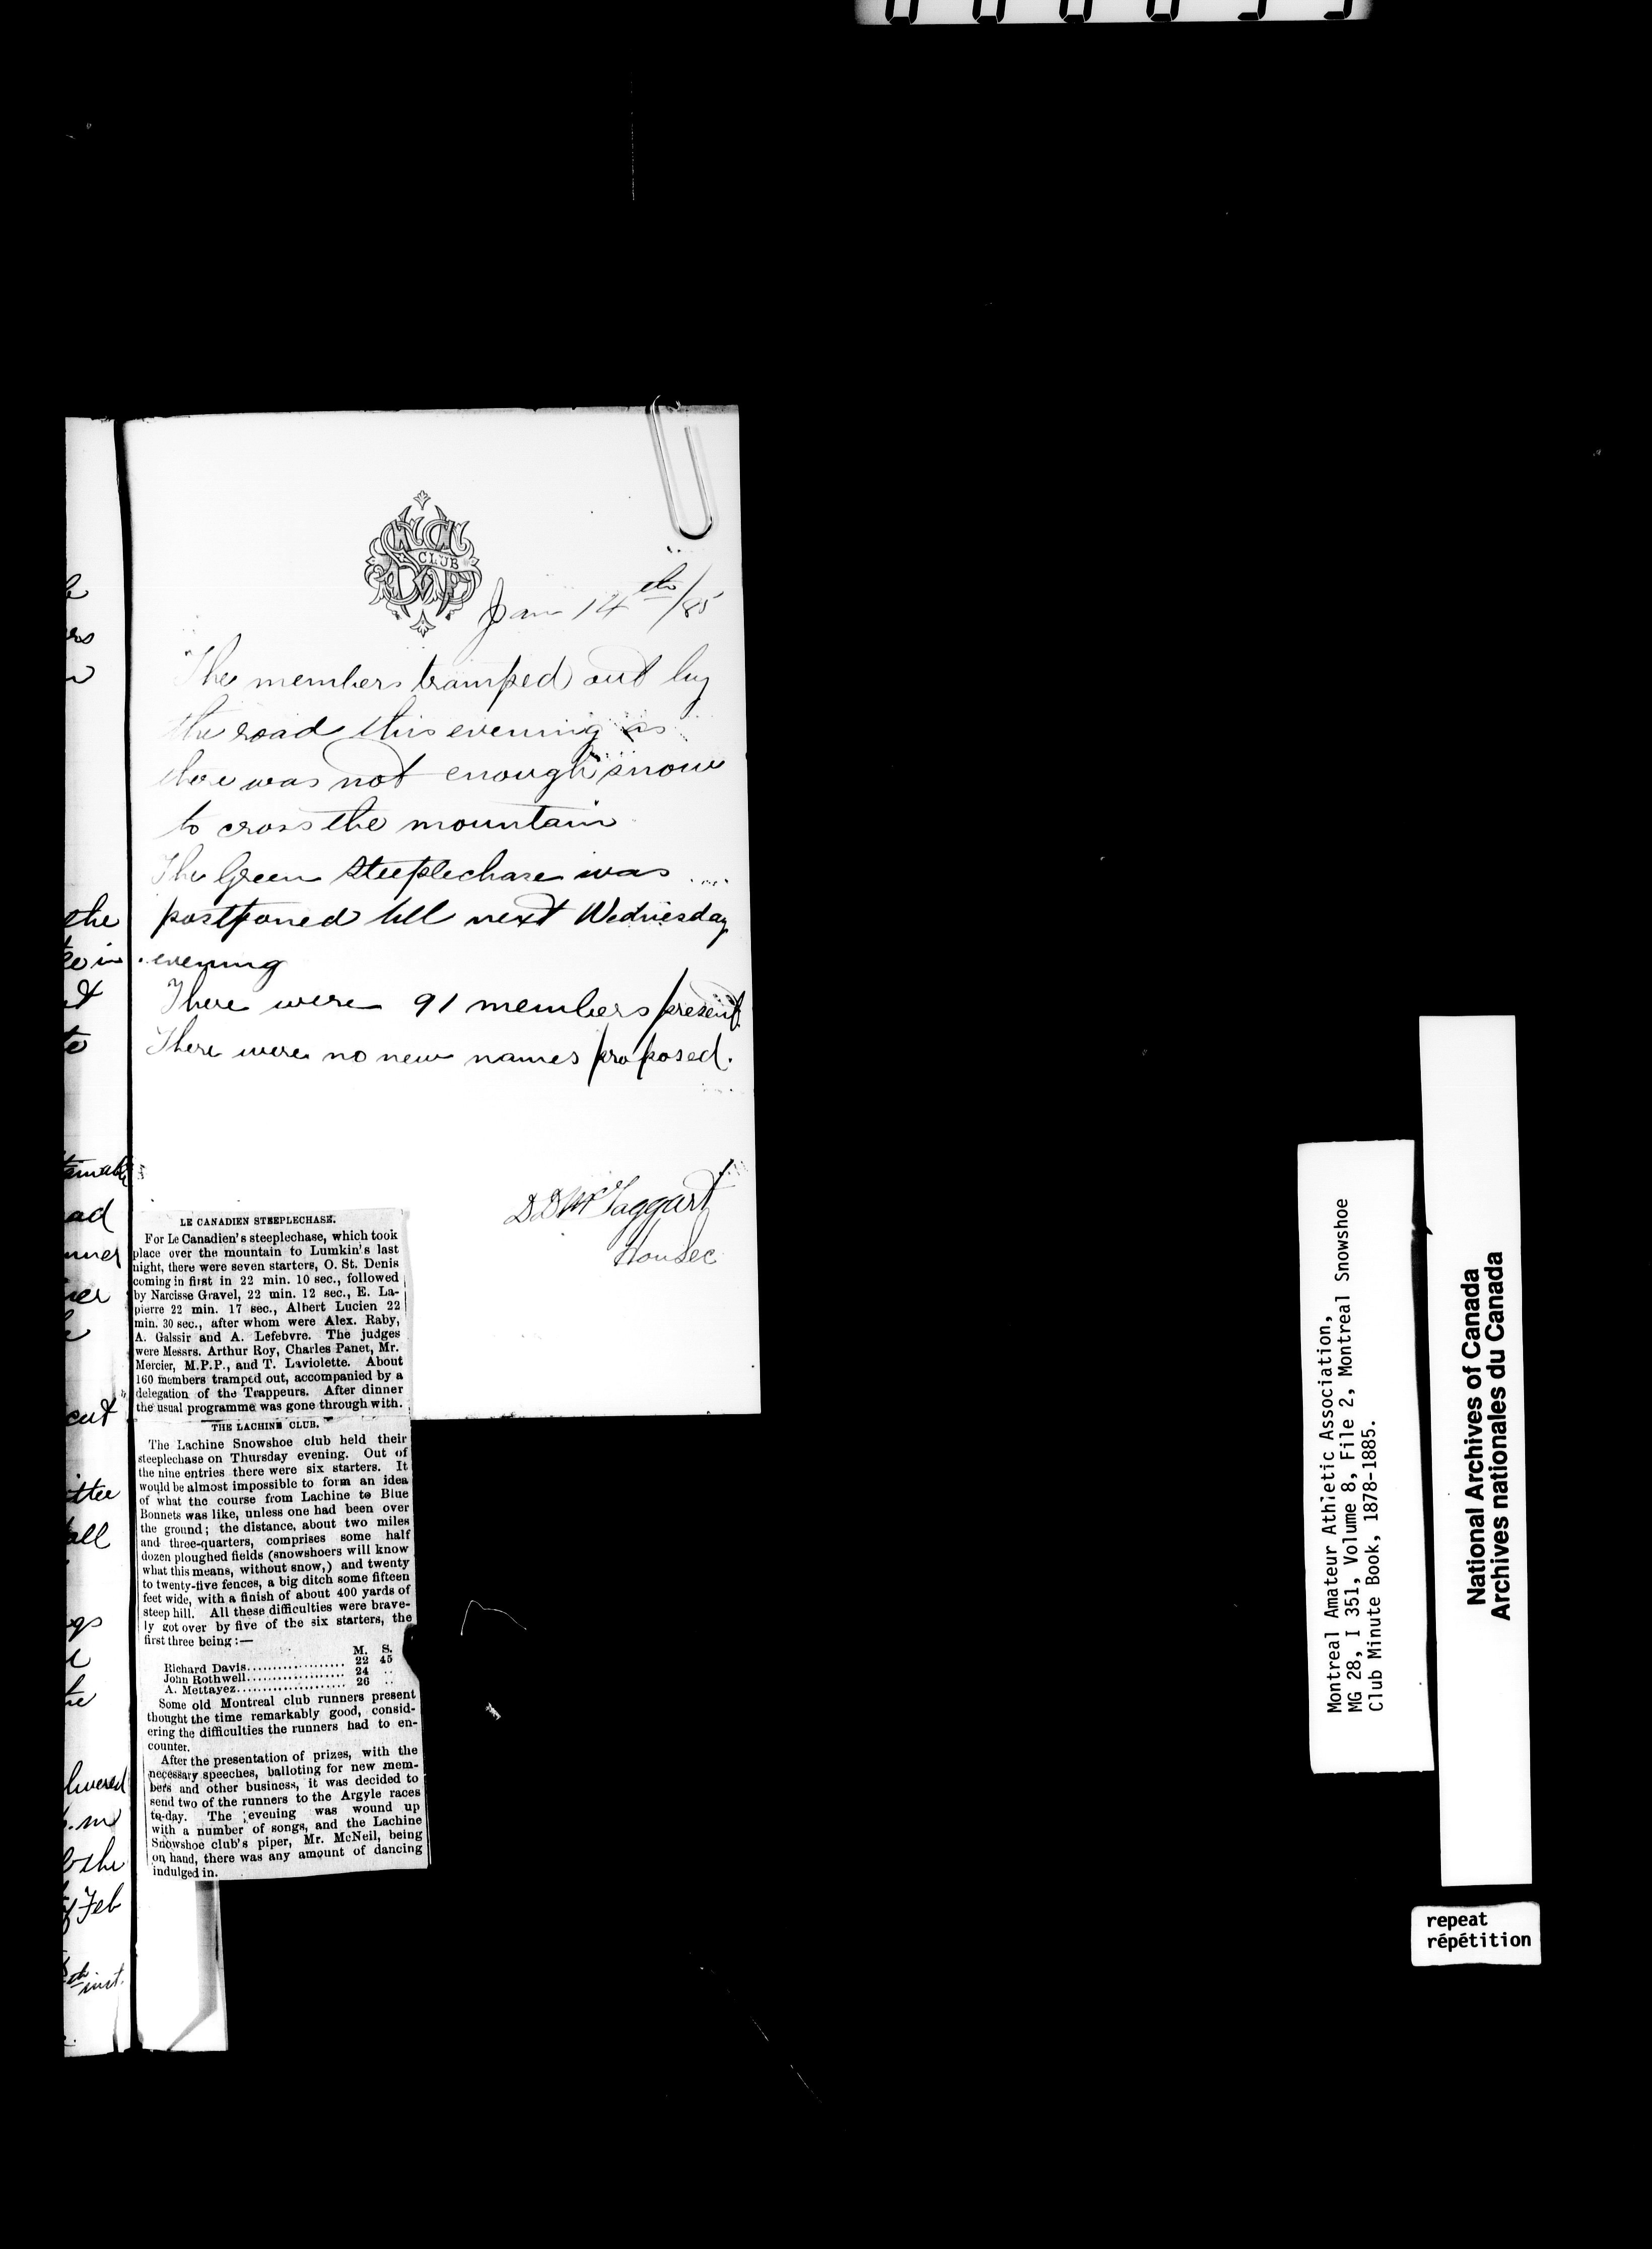 CLUB
Jan 14th/85
The members tramped out by
the road this evening as
there was not enough snow
to cross the mountain
The Green Steeplechase was
postponed till next Wednesday
evening
There were 91 members present
There were no new names proposed.
D D McTaggart
Hon Sec
LE CANADIEN STEEPLECHASE.
For Le Canadien's steeplechase, which took
place over the mountain to Lumkin's last
night, there were seven starters, O. St. Denis
coming in first in 22 min. 10 sec., followed
by Narcisse Gravel, 22 min. 12 sec., E. La-
pierre 22 min. 17 sec., Albert Lucien 22
min. 30 sec., after whom were Alex. Raby,
A. Galssir and A. Lefebvre. The judges
were Messrs. Arthur Roy, Charles Panet, Mr.
Mercier, M.P.P., and T. Laviolette. About
160 members tramped out, accompanied by a
delegation of the Trappeurs. After dinner
the usual programme was gone through with.
THE LACHINE CLUB.
The Lachine Snowshoe club held their
steeplechase on Thursday evening. Out of
the nine entries there were six starters. It
would be almost impossible to form an idea
of what the course from Lachine to Blue
Bonnets was like, unless one had been over
the ground; the distance, about two miles
and three-quarters, comprises some half
dozen ploughed fields (snowshoers will know
what this means, without snow,) and twenty
to twenty-five fences, a big ditch some fifteen
feet wide, with a finish of about 400 yards of
steep hill. All these difficulties were brave-
ly got over by five of the six starters, the
first three being:—
M. S.
Richard Davis................... 22 45
John Rothwell................... 24 ..
A. Mettayez..................... 26 ..
Some old Montreal club runners present
thought the time remarkably good, consid-
ering the difficulties the runners had to en-
counter.
After the presentation of prizes, with the
necessary speeches, balloting for new mem-
bers and other business, it was decided to
send two of the runners to the Argyle races
to-day. The evening was wound up
with a number of songs, and the Lachine
Snowshoe club's piper, Mr. McNeil, being
on hand, there was any amount of dancing
indulged in.
the
to
ad
cut
all
the
Feb
inst.
Montreal Amateur Athletic Association,
MG 28, I 351, Volume 8, File 2, Montreal Snowshoe
Club Minute Book, 1878-1885.
National Archives of Canada
Archives nationales du Canada
repeat
répétition